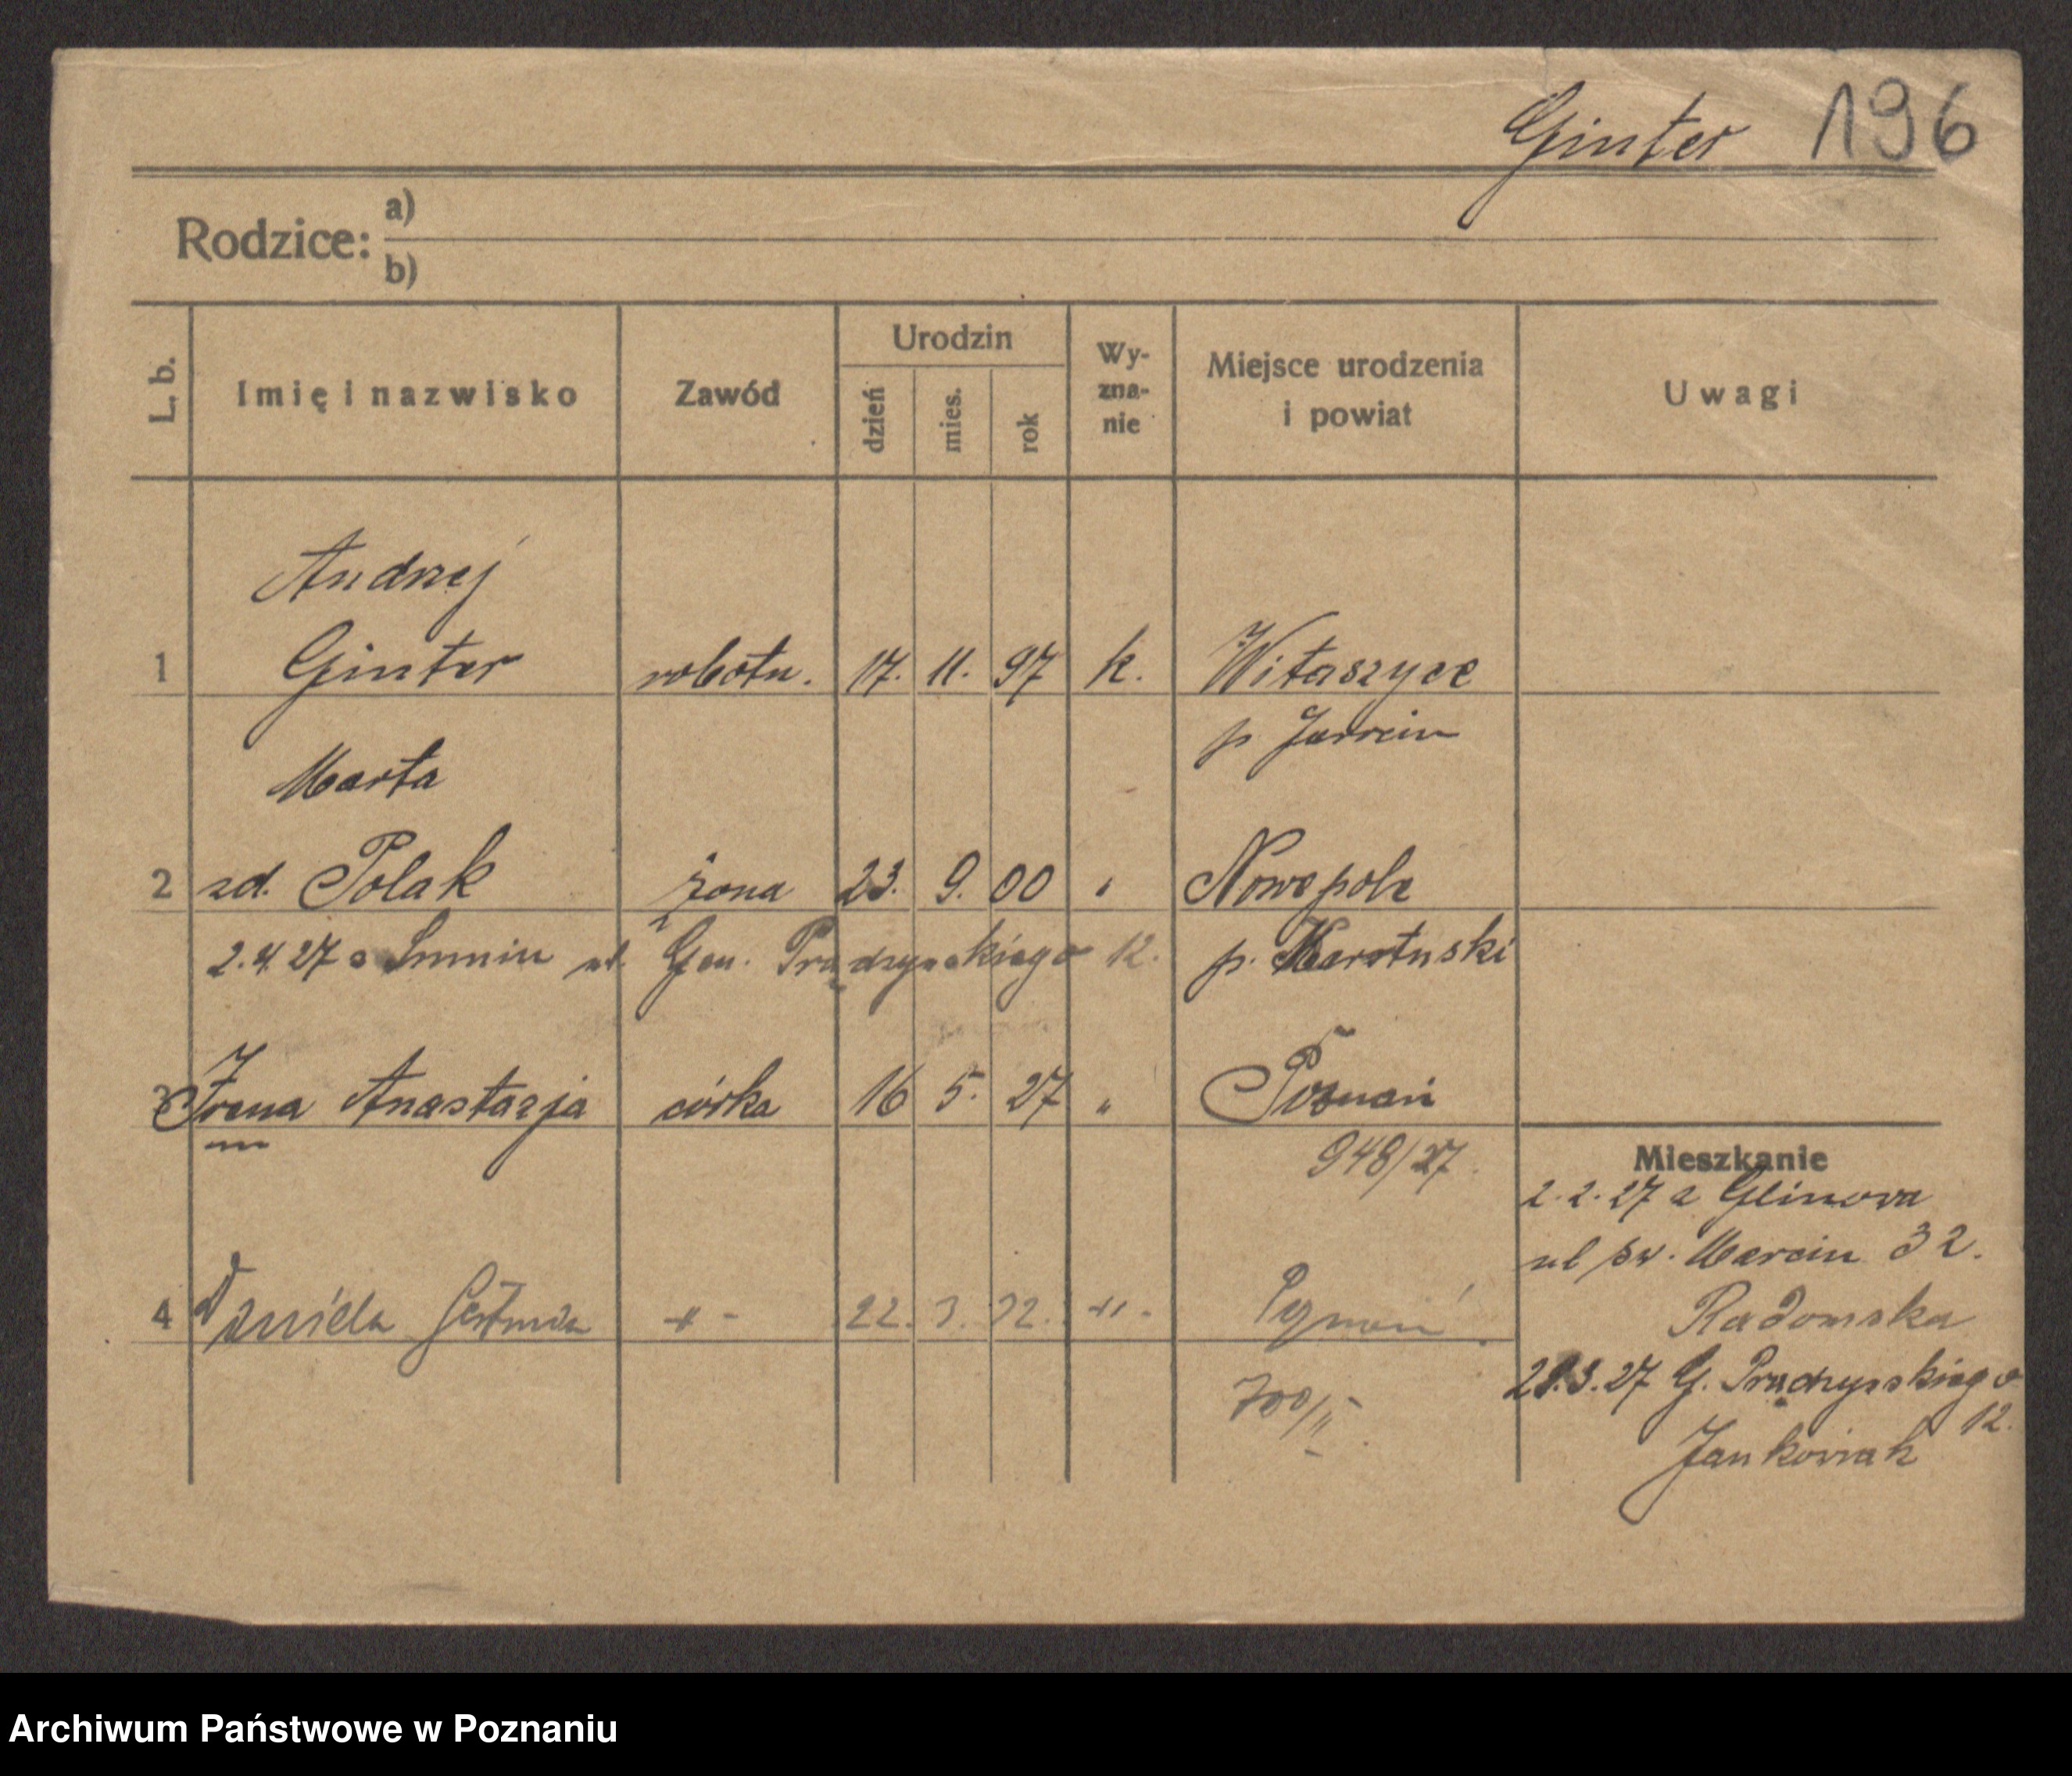 Ginter 196
Rodzice: a)
b)
L. b.
Imię i nazwisko
Zawód
Urodzin
dzień
mies.
rok
Wy-
zna-
nie
Miejsce urodzenia
i powiat
Uwagi
Andrzej
1 Ginter robotn. 17. 11. 97 k. Witaszyce
p. Jarocin
Marta
2 zd. Polak żona 23. 9. 00 " Nowe pole
2.4.27 z ul. Gen. Prądzyskiego 12. p.
3 Irena Anastazja córka 16 5. 27 " Poznań
948/27
Mieszkanie
2.2.27 z Glinowa
ul św. Marcin 32.
4 -"- 22. 3. 32. -"- Poznań
Radomska
.3.27 G. Prądzyskiego
12.
700/II
Jankowiak
Archiwum Państwowe w Poznaniu